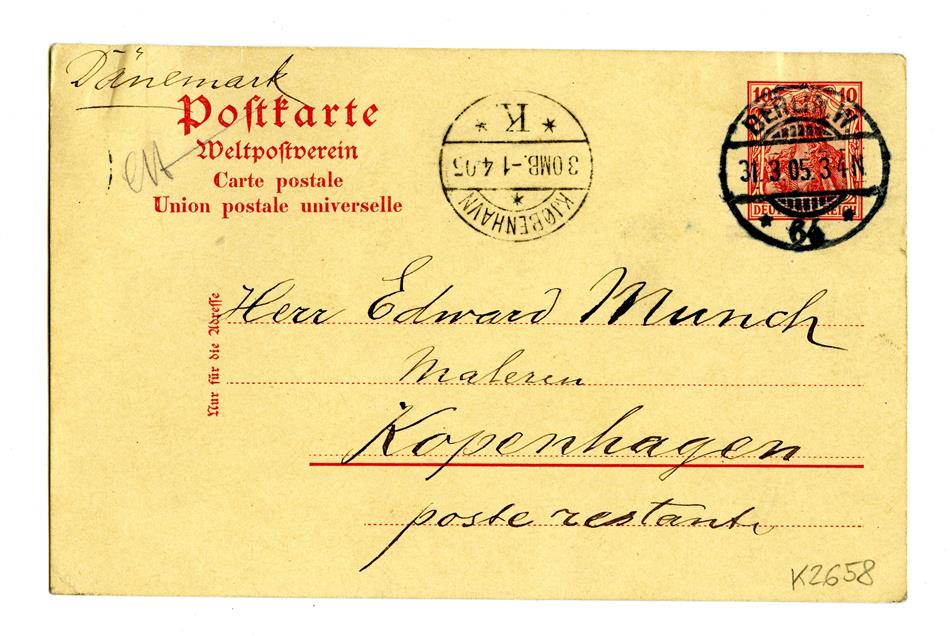 Dänemark
Postkarte
Weltpostverein
Carte postale
Union postale universelle
K.
3.OMB.-1.4.05
KJØBENHAVN
10 10
BERLIN.W.
31.3.05.3-4N.
64
DEUTSCHES REICH
Nur für die Adresse
Herr Edward Munch
Maleren
Kopenhagen
poste restante
K2658